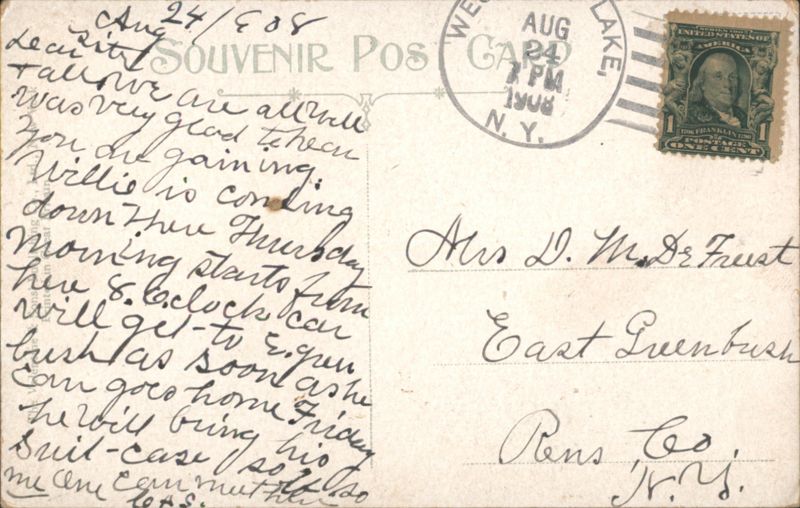 Aug 24/908
Dear Sister
+ all. we are all well
was very glad to hear
you are gaining.
Willie is comeing
down there Thursday
morning starts from
here 8. O,clock car
will get to E. green
bush as soon as he
can goes home Friday
he will bring his
suit-case so
me one can meet him
SOUVENIR POST CARD
LAKE,
AUG
24
7 PM
1908
N. Y.
SERIES 1902
UNITED STATES OF
AMERICA
1706 FRANKLIN 1790
POSTAGE
1 ONE CENT 1
Mrs D. M. De Freest
East Greenbush
Rens, Co,
N. Y.